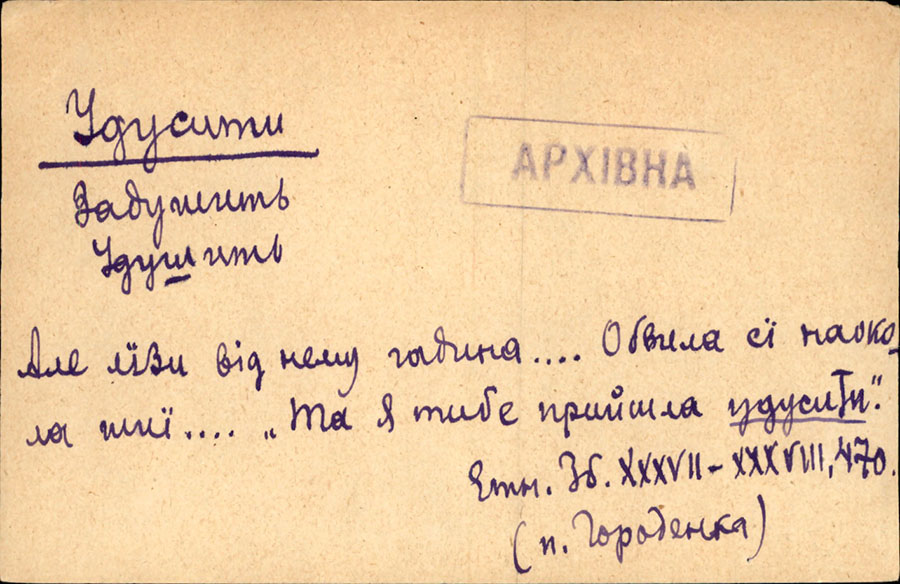 Удусити
АРХІВНА
Задушить
Удушить
Але лїзи від нему гадина.... Обвила сї наоко
ла шиї.... „Та я тибе прийшла удусити“.
Етн. Зб. XXXVII–XXXVIII, 470.
(п. Городенка)